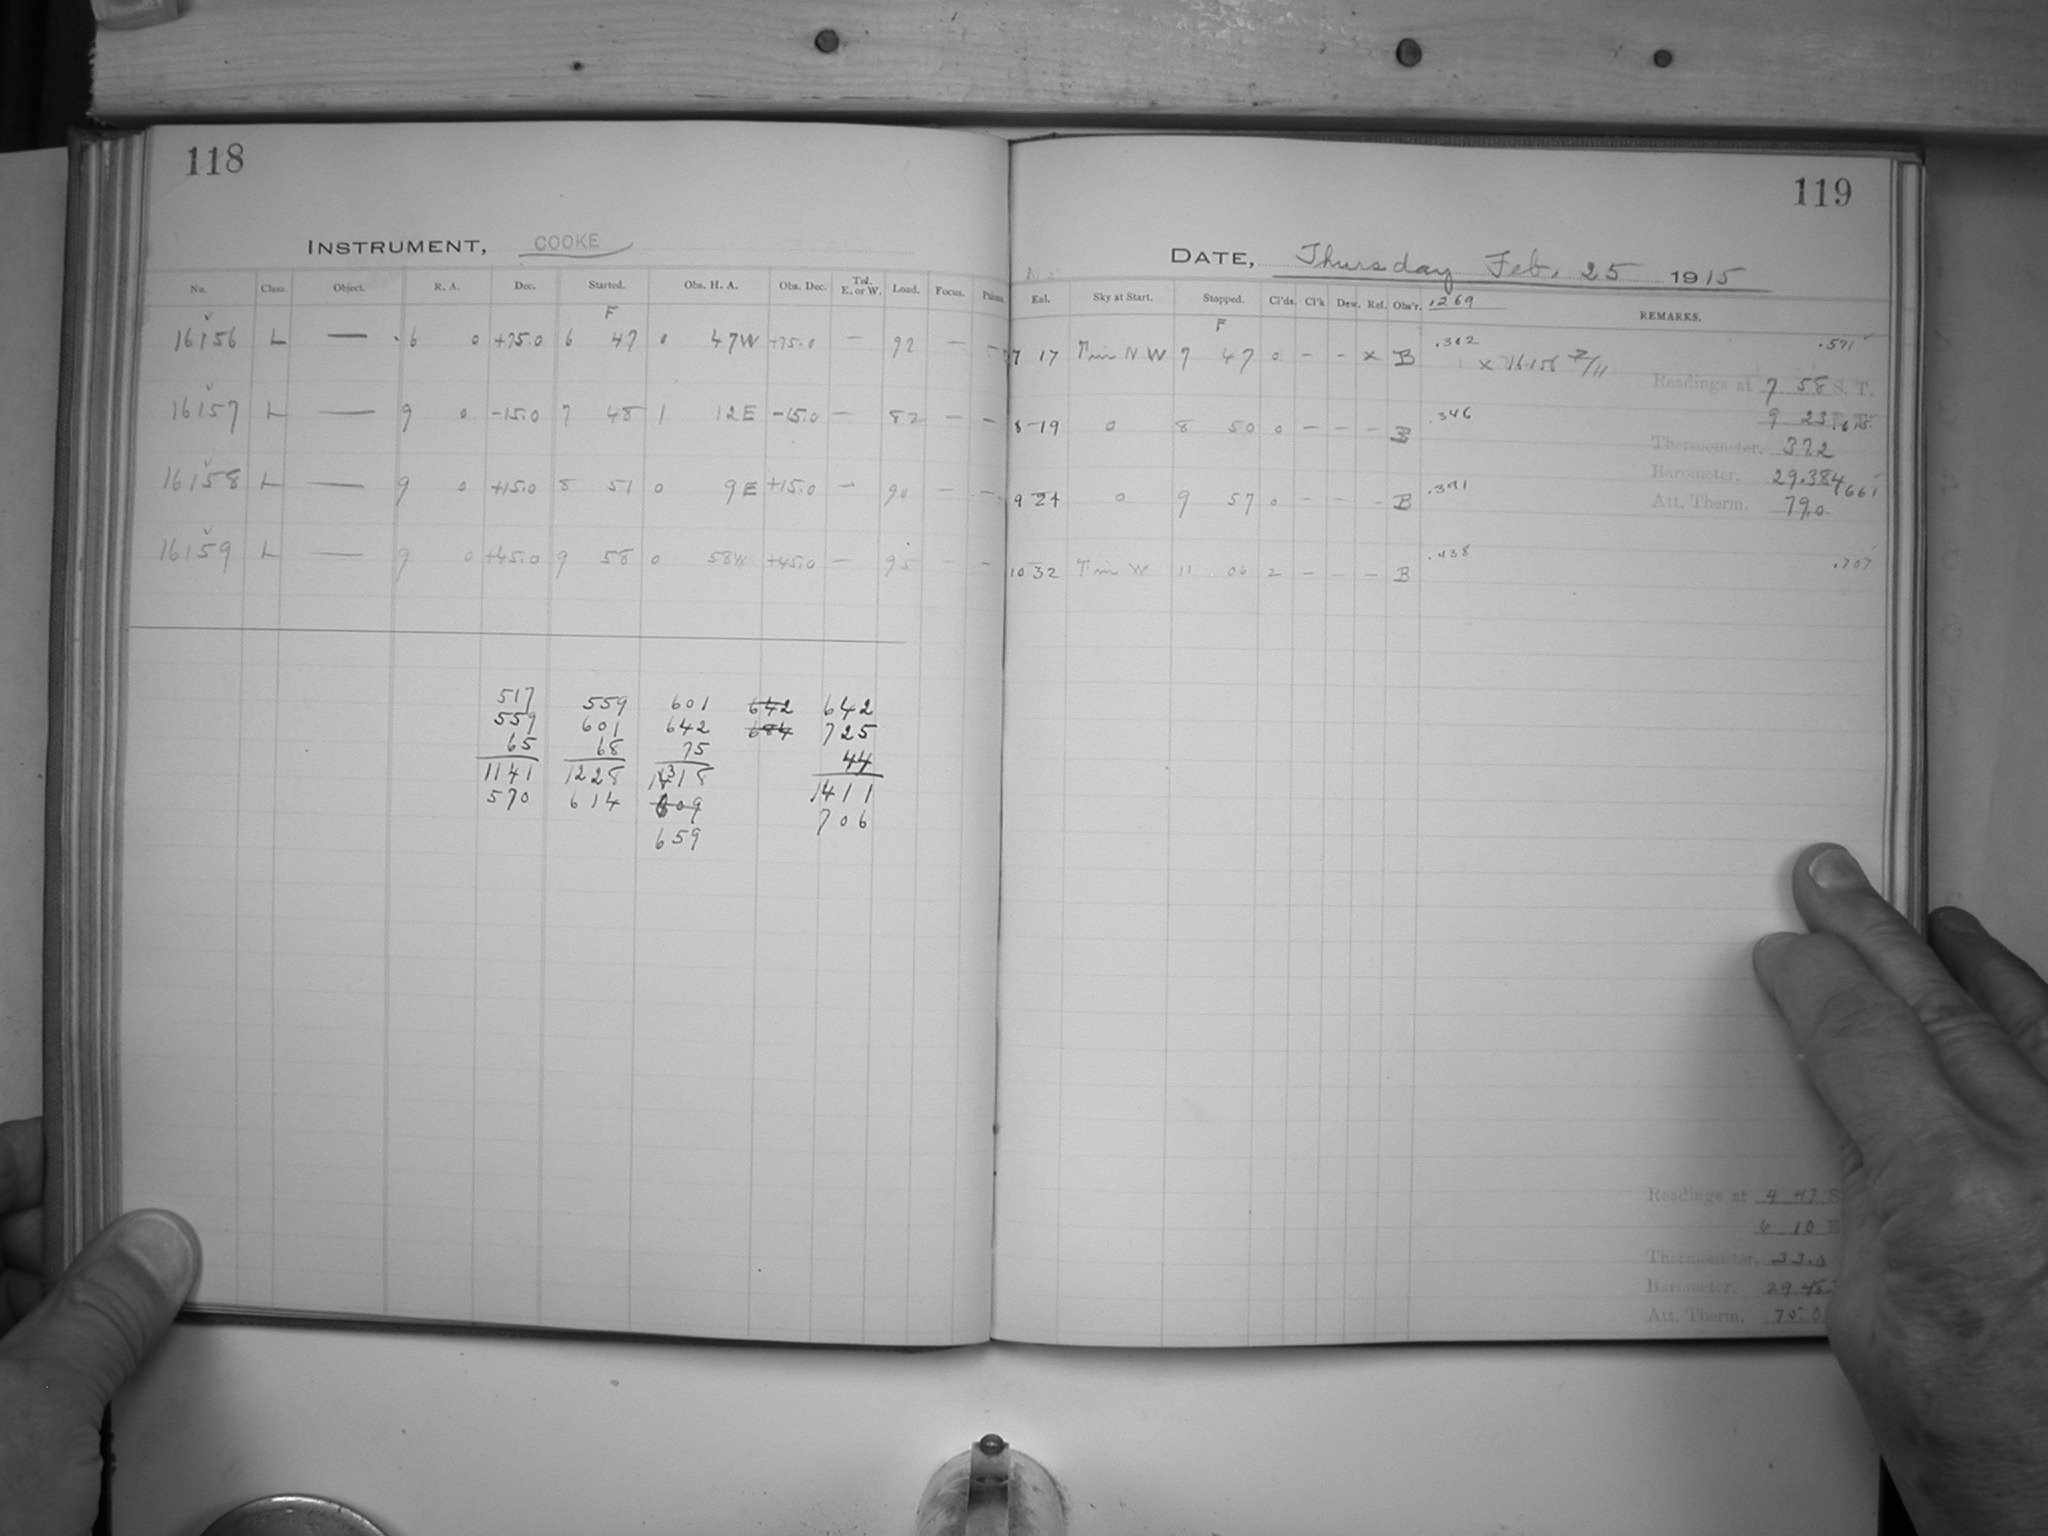 118
INSTRUMENT, COOKE
No. Class. Object. R. A. Dec. Started. Obs. H. A. Obs. Dec. Tel. E. or W. Load. Focus.
F
16156 L — 6 0 +75.0 6 47 0 47W +75.0 — 92 — —
16157 L — 9 0 -15.0 7 48 1 12E -15.0 — 82 — —
16158 L — 9 0 +15.0 8 51 0 9E +15.0 — 90 — —
16159 L — 9 0 +45.0 9 58 0 58W +45.0 — 95 — —
517 559 601 642 642
559 601 642 684 725
65 68 75 44
1141 1228 1318 1411
570 614 609 706
659
119
DATE, Thursday Feb. 25 1915
Sky at Start. Stopped. Cl'ds. Cl'k Dew. Ref. Obs'r. .1269 REMARKS.
F
7 17 N W 7 47 0 - - x B .302 x 16156 7/11 .591
Readings at 7 58 S. T.
8 19 0 8 50 0 — — — B .346
9 23
Thermometer. 37.2
Barometer. 29.384
9 24 0 9 57 0 - - - B .391 .661
Att. Therm. 79.0
10 32 W 11 06 2 — — — B .438 .707
Readings at 4 47 S
6 10
Thermometer. 33.0
Barometer. 29.45
Att. Therm. 75.0